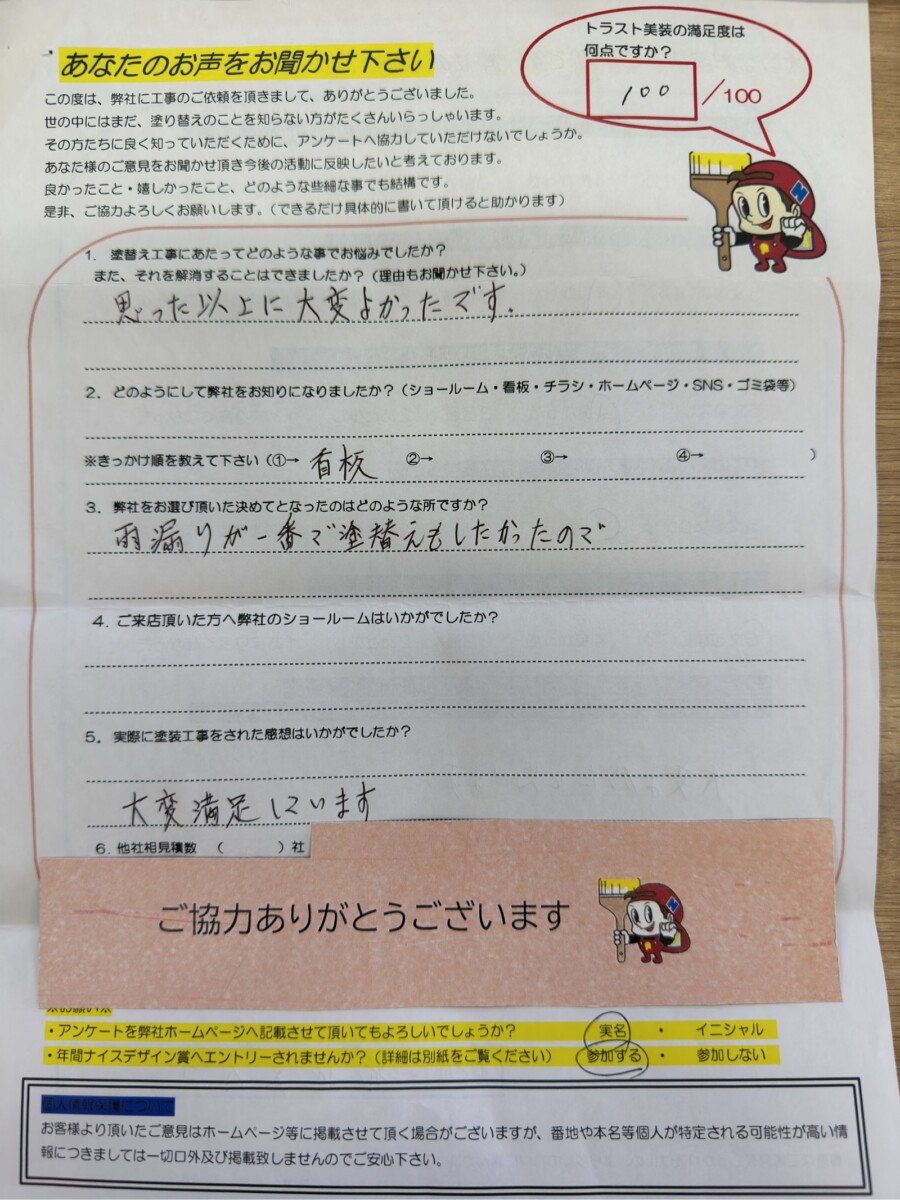 トラスト美装の満足度は
何点ですか?
100 /100
あなたのお声をお聞かせ下さい
この度は、弊社に工事のご依頼を頂きまして、ありがとうございました。
世の中にはまだ、塗り替えのことを知らない方がたくさんいらっしゃいます。
その方たちに良く知っていただくために、アンケートへ協力していただけないでしょうか。
あなた様のご意見をお聞かせ頂き今後の活動に反映したいと考えております。
良かったこと・嬉しかったこと、どのような些細な事でも結構です。
是非、ご協力よろしくお願いします。(できるだけ具体的に書いて頂けると助かります)
N
1. 塗替え工事にあたってどのような事でお悩みでしたか?
また、それを解消することはできましたか?(理由もお聞かせ下さい。)
思った以上に大変よかったです。
2. どのようにして弊社をお知りになりましたか?(ショールーム・看板・チラシ・ホームページ・SNS・ゴミ袋等)
※きっかけ順を教えて下さい(①→ 看板 ②→ ③→ ④→ )
3. 弊社をお選び頂いた決めてとなったのはどのような所ですか?
雨漏りが一番で塗替えもしたかったので
4. ご来店頂いた方へ弊社のショールームはいかがでしたか?
5. 実際に塗装工事をされた感想はいかがでしたか?
大変満足しています
6. 他社相見積数 ( )社
ご協力ありがとうございます
N
※お願い※
・アンケートを弊社ホームページへ記載させて頂いてもよろしいでしょうか? 実名 ・ イニシャル
・年間ナイスデザイン賞へエントリーされませんか?(詳細は別紙をご覧ください) 参加する ・ 参加しない
個人情報保護について
お客様より頂いたご意見はホームページ等に掲載させて頂く場合がございますが、番地や本名等個人が特定される可能性が高い情
報につきましては一切口外及び掲載致しませんのでご安心下さい。